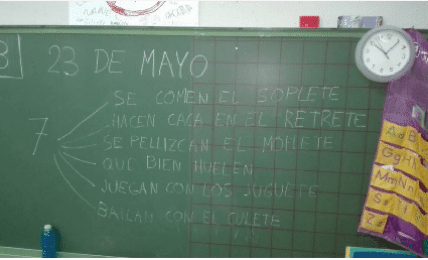 B 23 DE MAYO
7
SE COMEN EL SOPLETE
HACEN CACA EN EL RETRETE
SE PELLIZCAN EL MOFLETE
QUE BIEN HUELEN
JUEGAN CON LOS JUGUETE
BAILAN CON EL CULETE
AaB
GgHh
MmNn
Ss
Zz